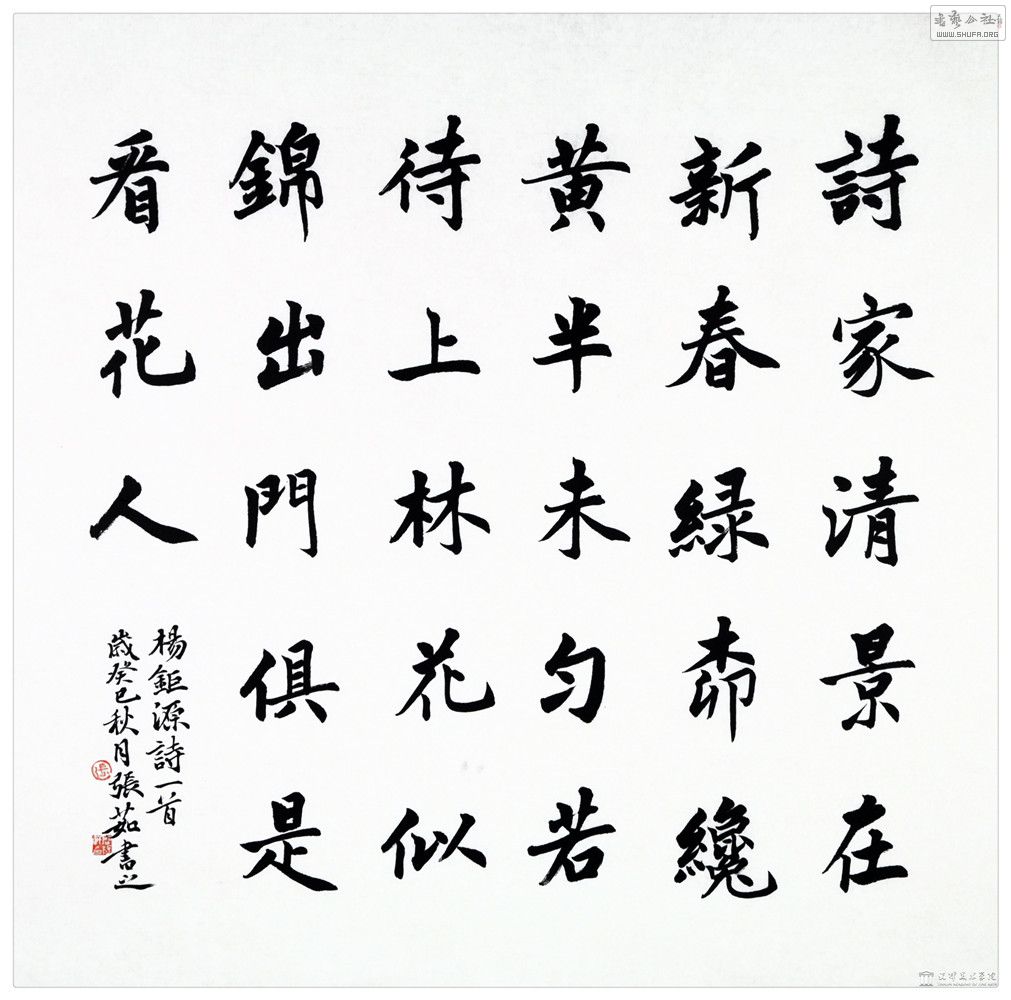 詩家清景在
新春緑柳纔
黄半未匀若
待上林花似
錦出門俱是
看花人
楊鉅源詩一首
歲癸巳秋月張茹書之
書藝公社
WWW.SHUFA.ORG